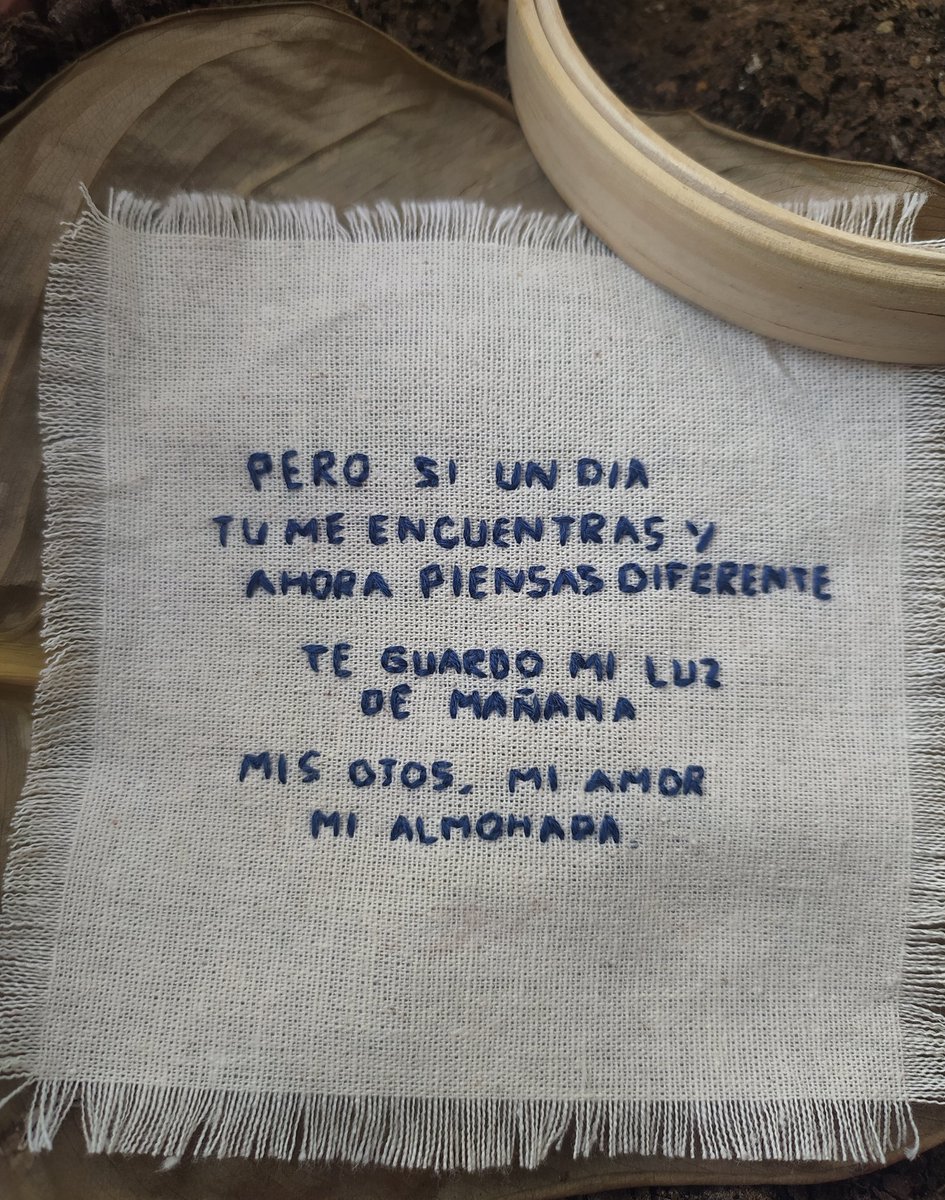 PERO SI UN DIA
TU ME ENCUENTRAS Y
AHORA PIENSAS DIFERENTE
TE GUARDO MI LUZ
DE MAÑANA
MIS OJOS, MI AMOR
MI ALMOHADA.